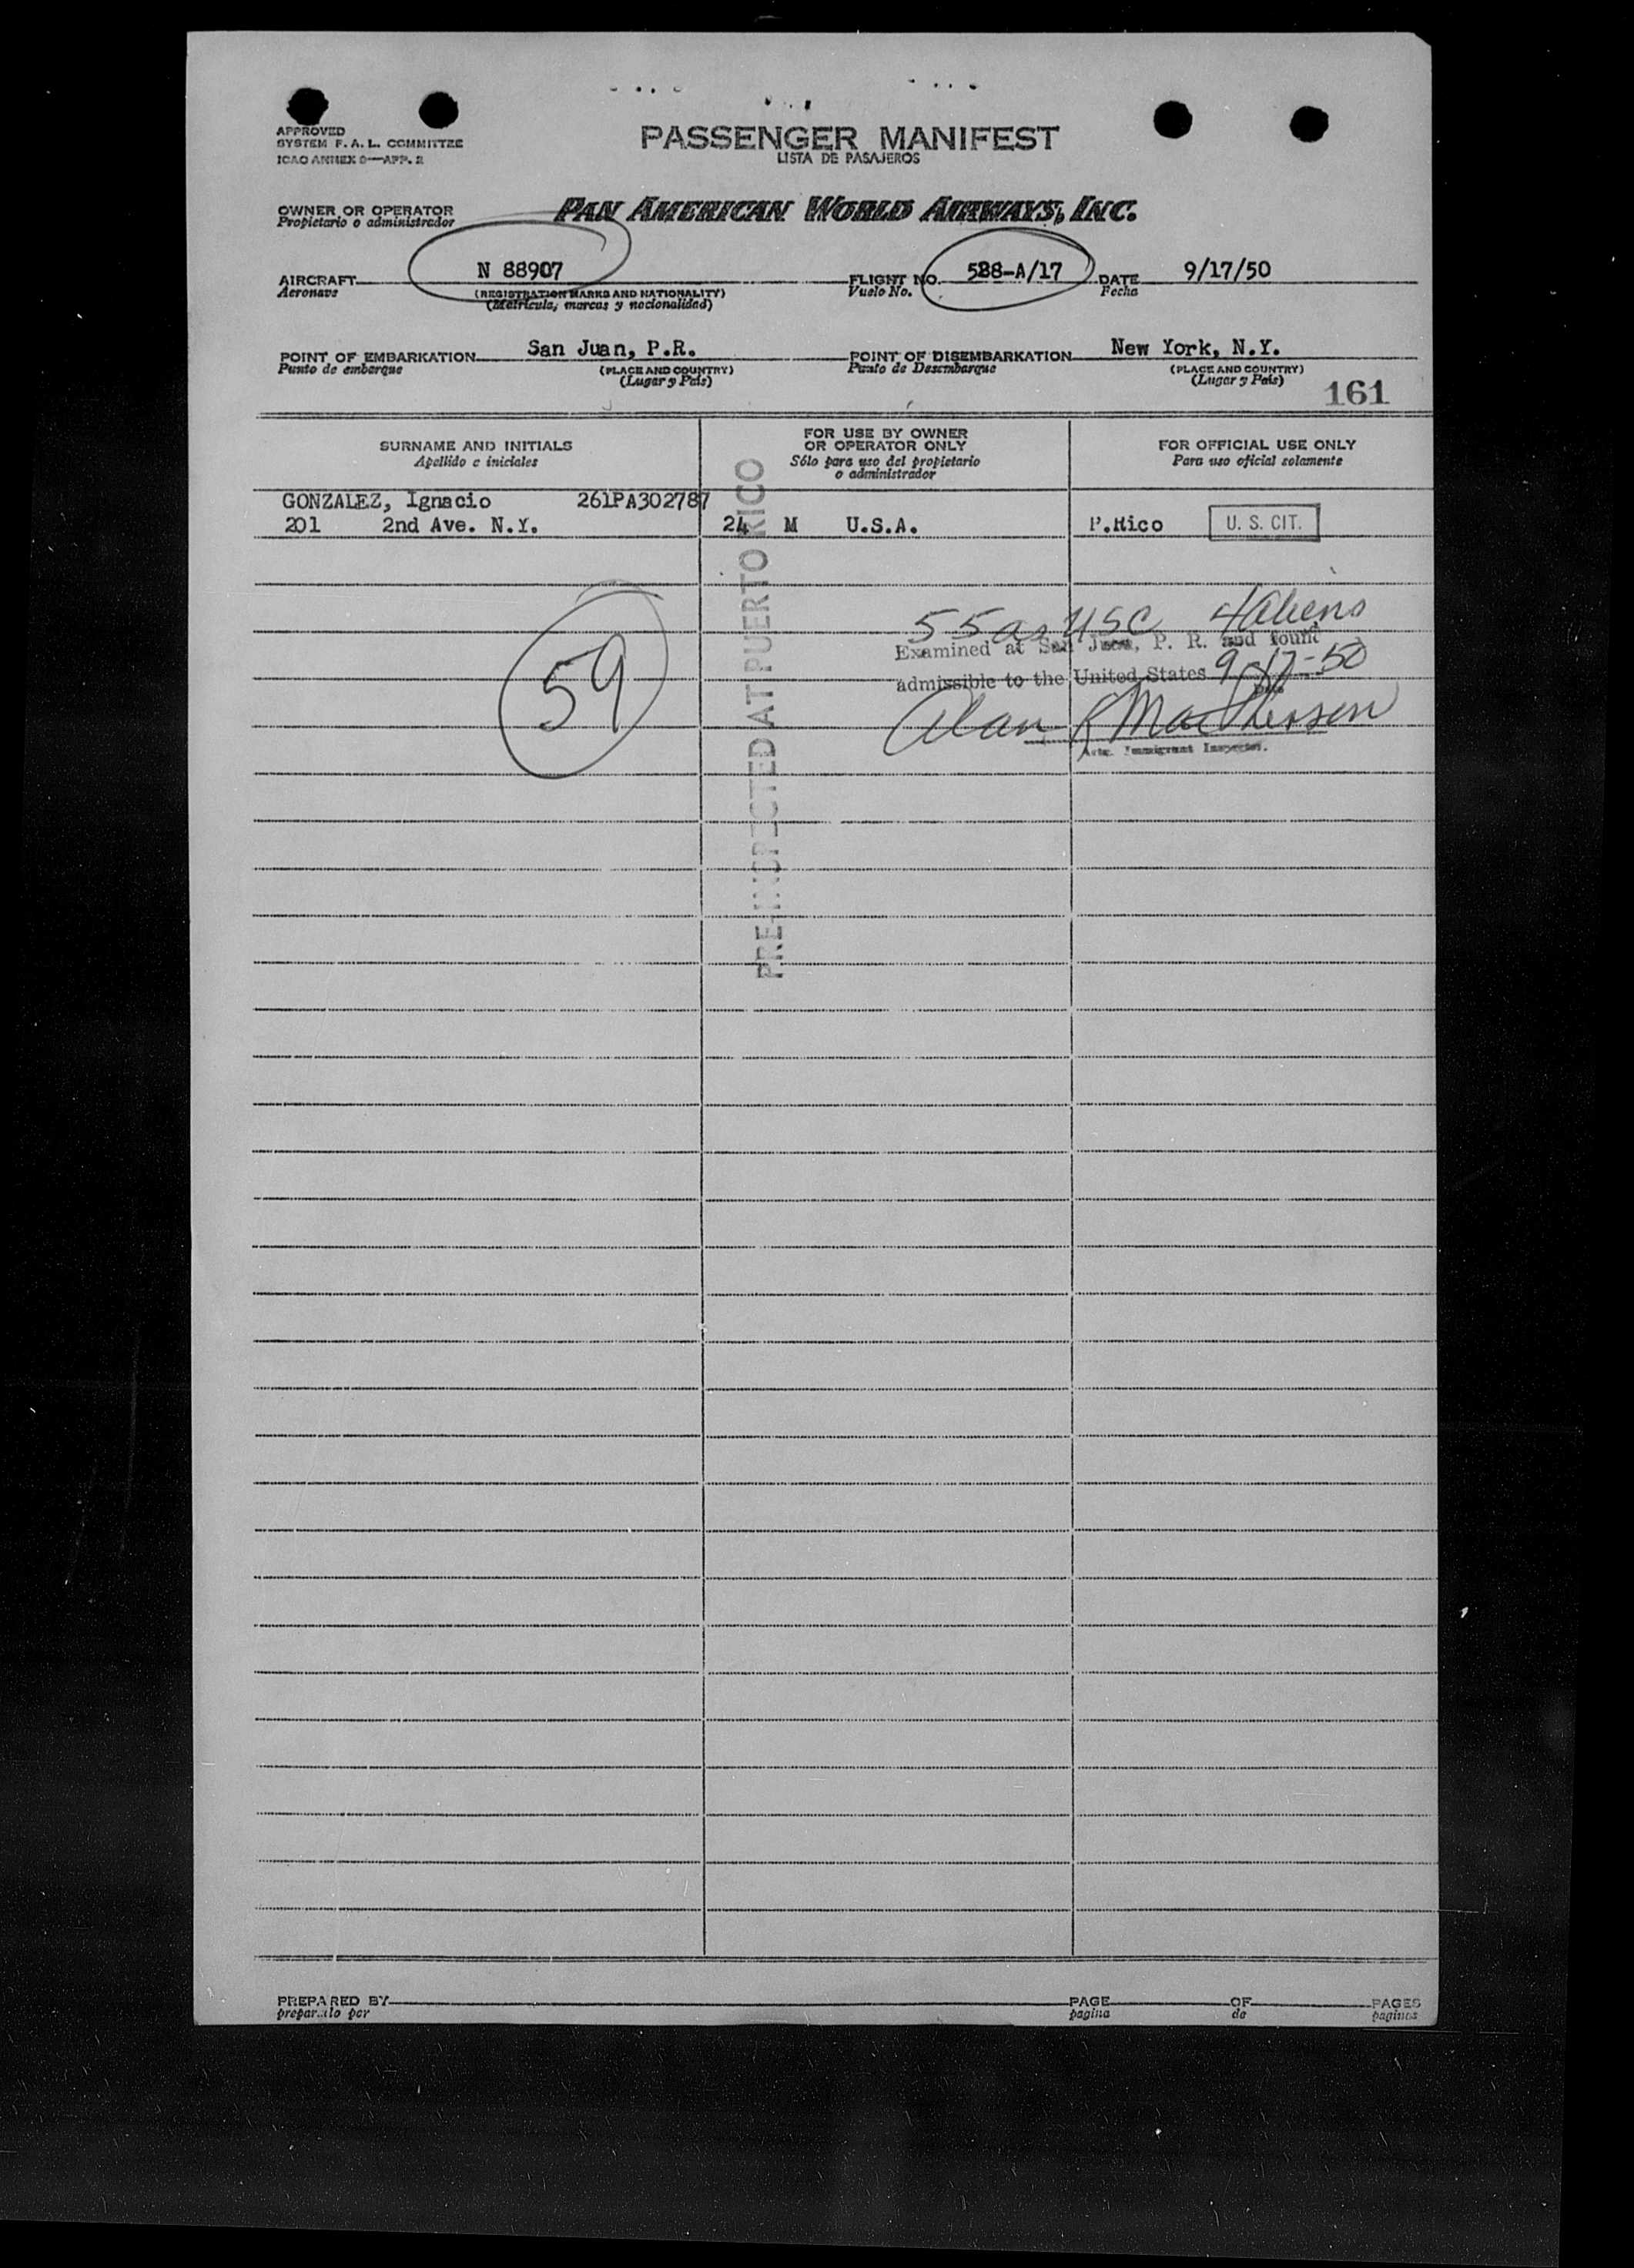 APPROVED
SYSTEM F. A. L. COMMITTEE
ICAO ANNEX 9—APP. 2
PASSENGER MANIFEST
LISTA DE PASAJEROS
OWNER OR OPERATOR
Propietario o administrador
PAN AMERICAN WORLD AIRWAYS, INC.
AIRCRAFT N 88907
Aeronave
(REGISTRATION MARKS AND NATIONALITY)
(Matrícula, marcas y nacionalidad)
FLIGHT NO. 528-A/17
Vuelo No.
DATE 9/17/50
Fecha
POINT OF EMBARKATION San Juan, P.R.
Punto de embarque
(PLACE AND COUNTRY)
(Lugar y País)
POINT OF DISEMBARKATION New York, N.Y.
Punto de Desembarque
(PLACE AND COUNTRY)
(Lugar y País)
161
SURNAME AND INITIALS
Apellido e iniciales
FOR USE BY OWNER
OR OPERATOR ONLY
Sólo para uso del propietario
o administrador
FOR OFFICIAL USE ONLY
Para uso oficial solamente
GONZALEZ, Ignacio 261PA302787
201 2nd Ave. N.Y. 24 M U.S.A. P.Rico U. S. CIT.
PRE-INSPECTED AT PUERTO RICO
59
55 as USC 4 Aliens
Examined at San Juan, P. R. and found
admissible to the United States 9-17-50
Alan R MacPherson
Actg. Immigrant Inspector.
PREPARED BY
preparado por
PAGE OF PAGES
pagina de paginas